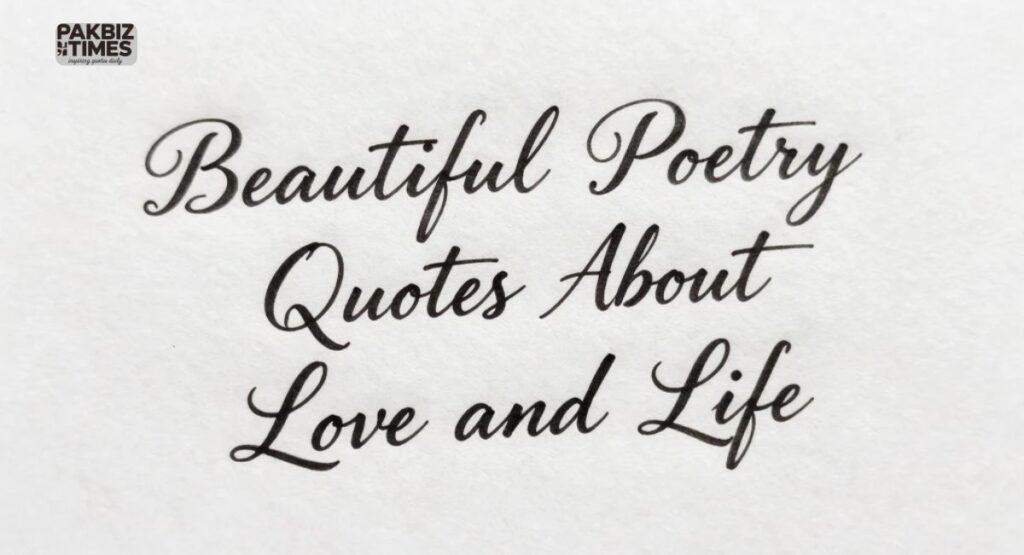 PAKBIZ
TIMES
inspiring quotes daily
Beautiful Poetry
Quotes About
Love and Life